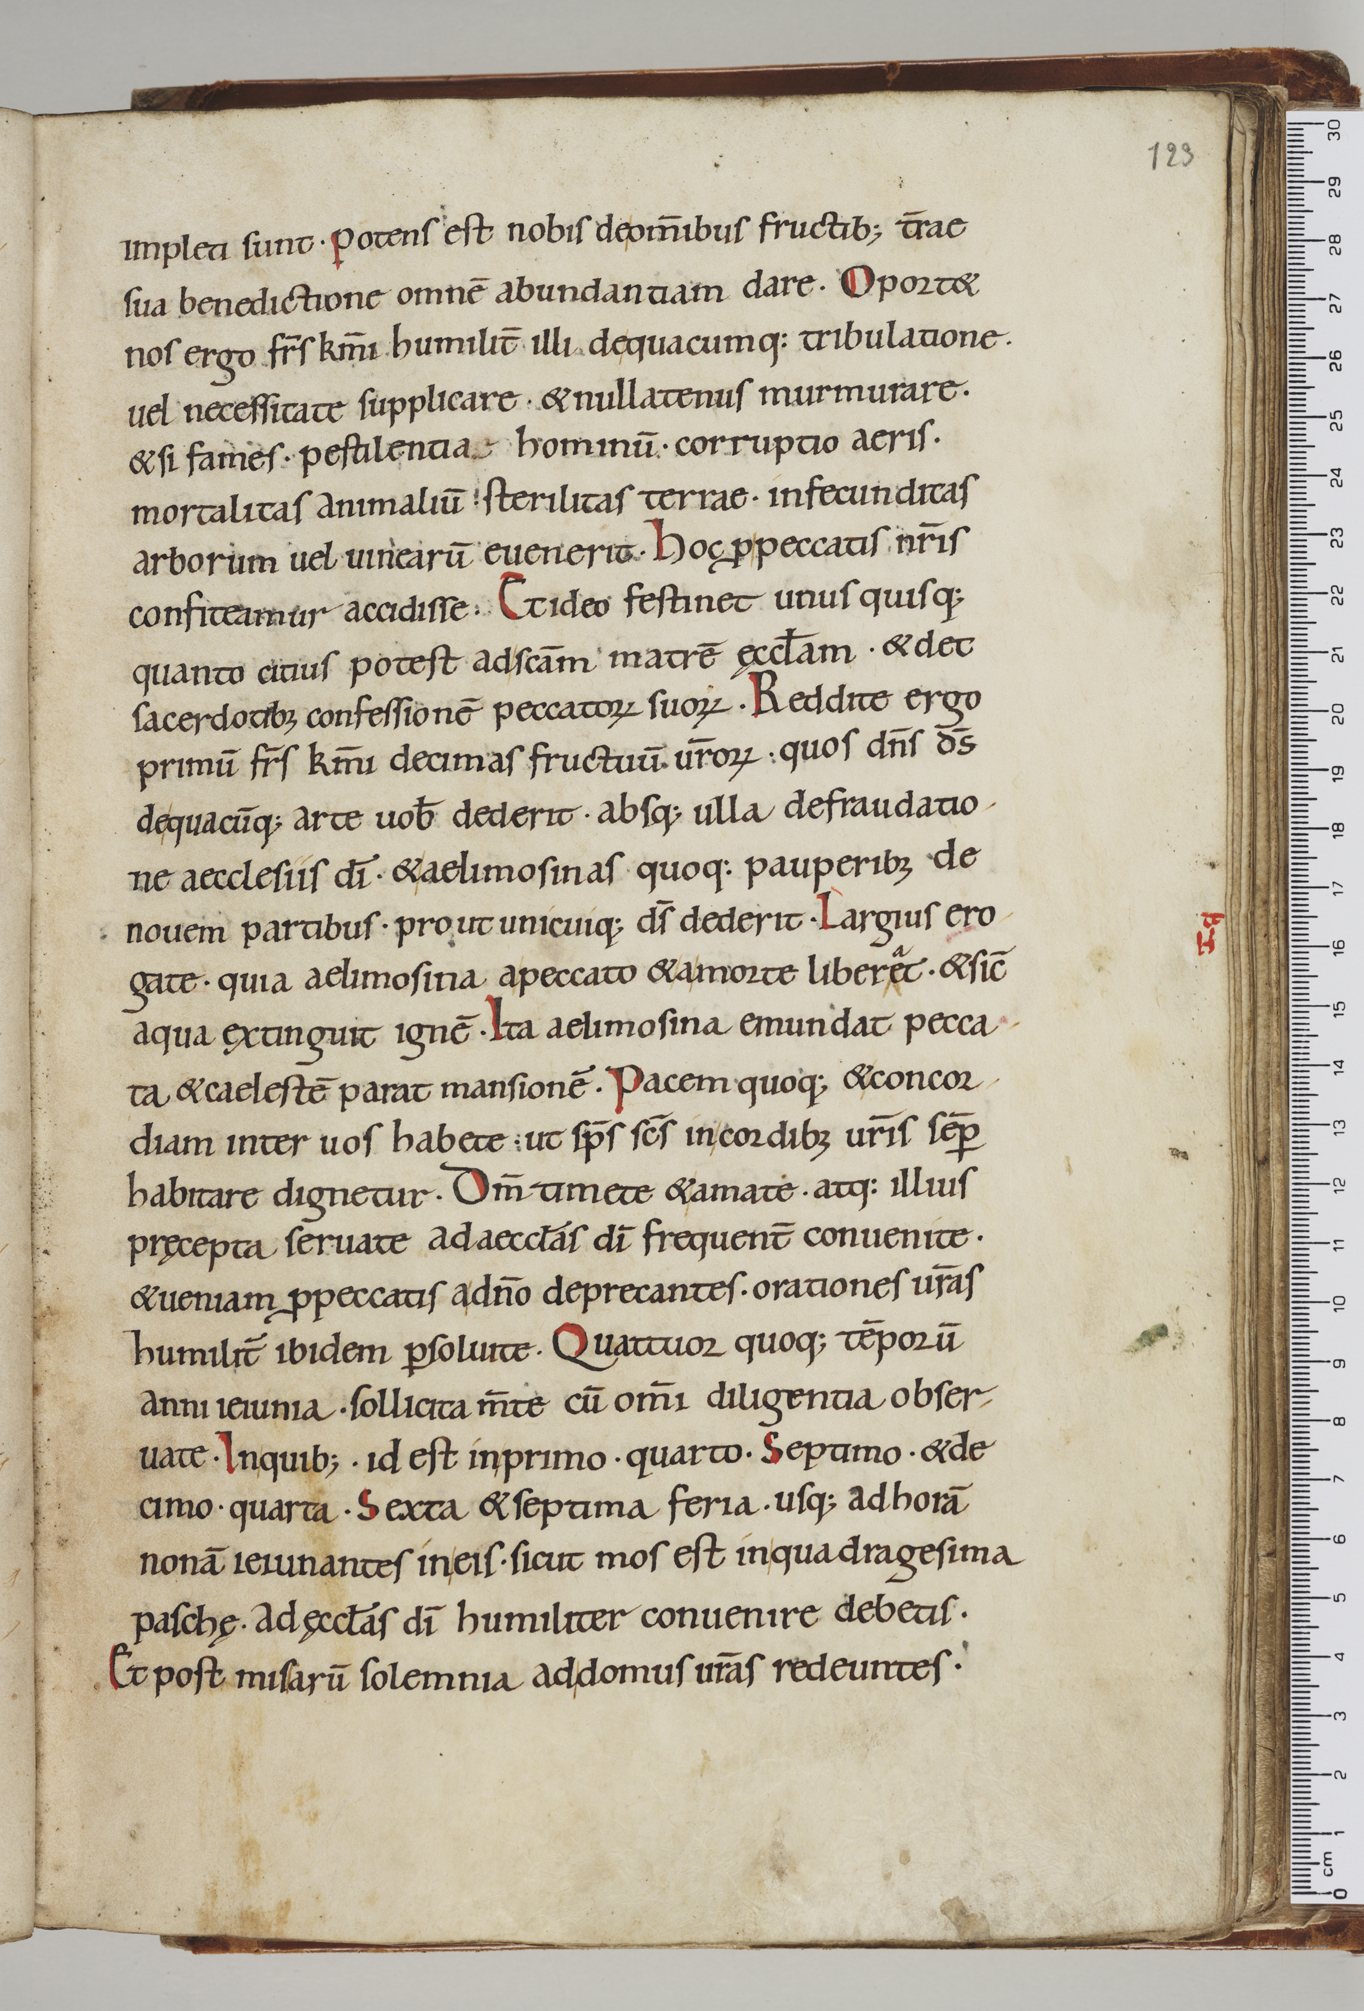 123
impleti sunt · Potens est nobis deom̄ibus fructib; t̄rae
sua benedictione omnē abundantiam dare · Oport&
nos ergo fr̄s km̄i humilit̄ illi dequacumq: tribulatione ·
uel necessitate supplicare · &nullatenus murmurare ·
&si fames · pestilentia hominū · corruptio aeris ·
mortalitas animaliū sterilitas terrae · infecunditas
arborum uel uinearū euenerit · Hoc ꝓpeccatis nr̄is
confiteamur accidisse · Etideo festinet unusquisq;
quanto citius potest adscām matrē ęccłam · &det
sacerdotibꝫ confessionē peccatoꝝ suoꝝ · Reddite ergo
primū fr̄s km̄i decimas fructuū ur̄oꝝ · quos dn̄s ds̄
dequacūq; arte uob̄ dederit · absq; ulla defraudatio-
ne aecclesiis dī · &aelimosinas quoq: pauperibꝫ de
nouem partibus · prout unicuiq; ds̄ dederit · Largius ero-
gate · quia aelimosina apeccato &amorte liberat · &sic̄
aqua extinguit ignē · Ita aelimosina emundat pecca-
ta &caelestē parat mansionē · Pacem quoq; &concor-
diam inter uos habete · ut sp̄s sc̄s incordibꝫ ur̄is sēp
habitare dignetur · Dm̄ timete &amate · atq: illius
pręcepta seruate adaeccłas dī frequent̄ conuenite ·
&ueniam ꝓpeccatis adn̄o deprecantes · orationes ur̄as
humilit̄ ibidem ꝑsoluite · Quattuor quoq; tēporū
anni ieiunia · sollicita m̄te cū om̄i diligentia obser-
uate · Inquib; · id est inprimo · quarto · Septimo · &de
cimo · quarta · Sexta &septima feria · usq; adhorā
nonā ieiunantes ineis · sicut mos est inquadragesima
paschę · adęccłas dī humiliter conuenire debetis ·
Et post misarū solemnia addomus ur̄as redeuntes ·